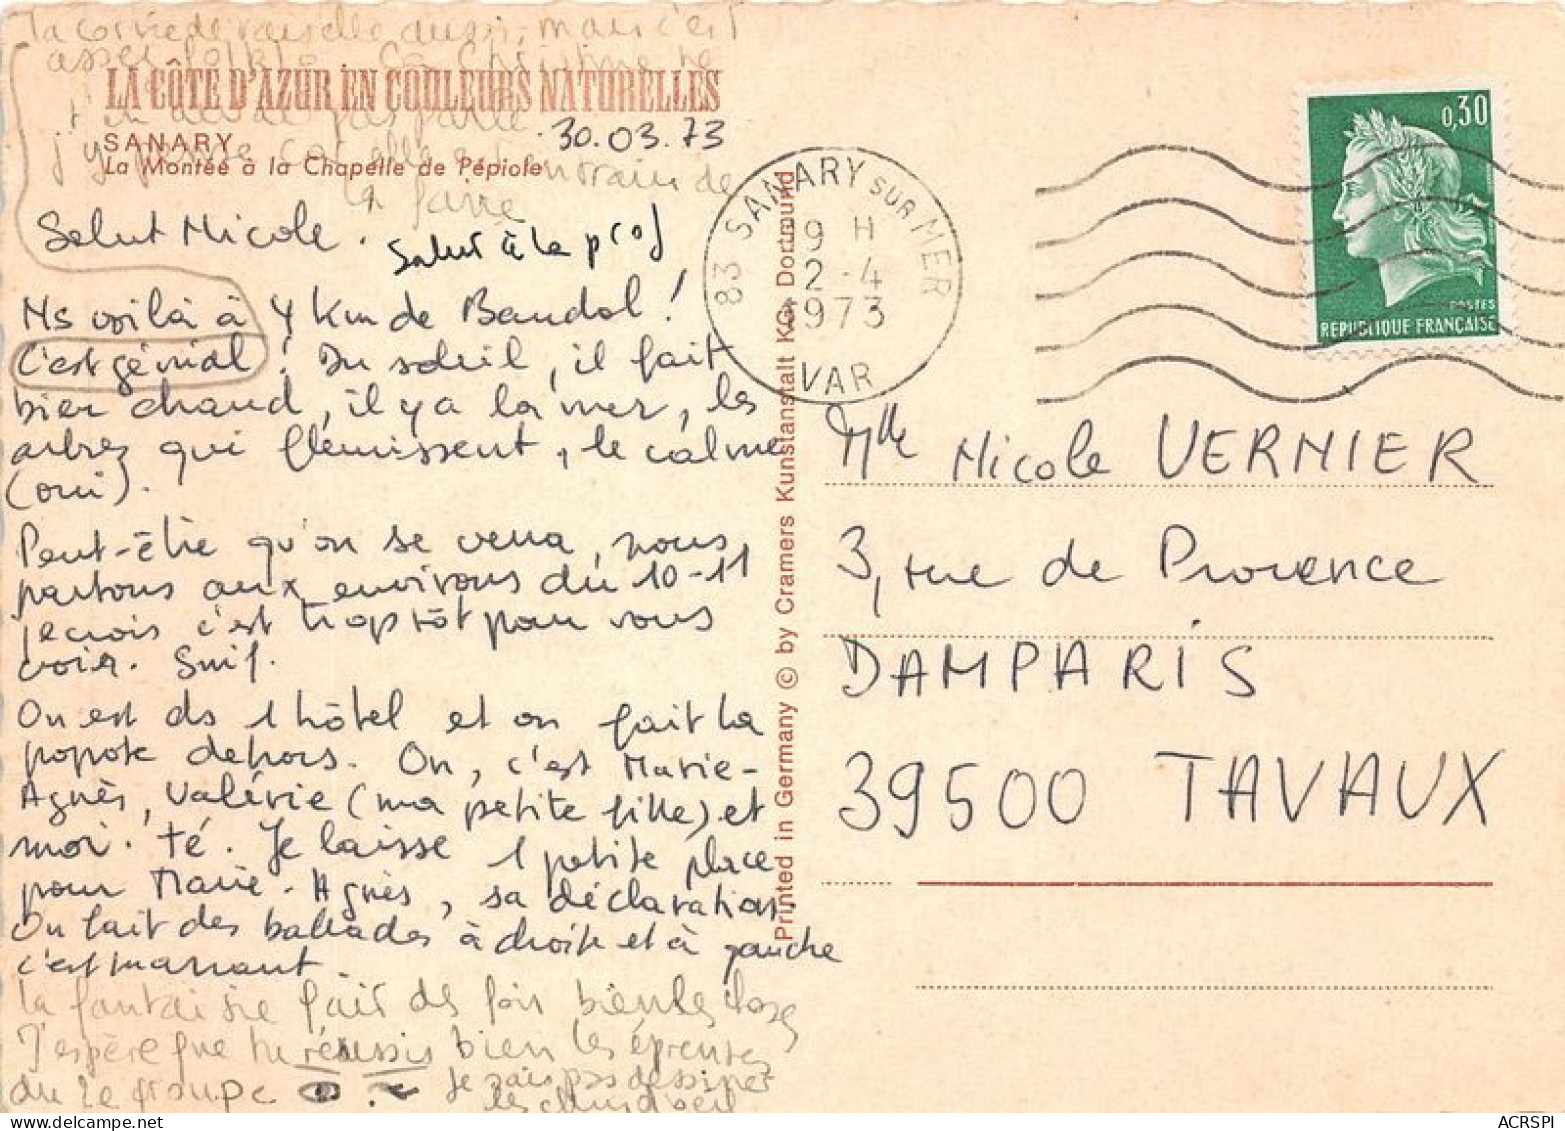 la corvée de vaisselle aussi, mais c'est
assez folklo. Ca Christine ne
t'en aurait pas parlé
j'y pense car elle est en train de
la faire
LA CÔTE D'AZUR EN COULEURS NATURELLES
SANARY
La Montée à la Chapelle de Pépiole
30.03.73
Salut Nicole.
Salut à la prof
Ns voilà à 4 km de Bandol !
C'est génial ! Du soleil, il fait
bien chaud, il y a la mer, les
arbres qui fleurissent, le calme
(oui).
Peut-être qu'on se verra, nous
partons aux environs du 10-11
je crois c'est trop tôt pour vous
voir. Snif.
On est ds 1 hôtel et on fait la
popote dehors. On, c'est Marie-
Agnès, Valérie (ma petite fille) et
moi. Té. Je laisse 1 petite place
pour Marie-Agnès, sa déclaration.
On fait des ballades à droite et à gauche
c'est marrant.
la fantaisie fait des fois bien les choses
J'espère que tu réussis bien les épreuves
du 2e groupe
Je sais pas dessiner
les clins d'oeil
83 SANARY SUR MER
19 H
2-4
1973
VAR
0,30
POSTES
REPUBLIQUE FRANÇAISE
Printed in Germany © by Cramers Kunstanstalt KG, Dortmund
Mlle Nicole VERNIER
3, rue de Provence
DAMPARIS
39500 TAVAUX
ACRSPI